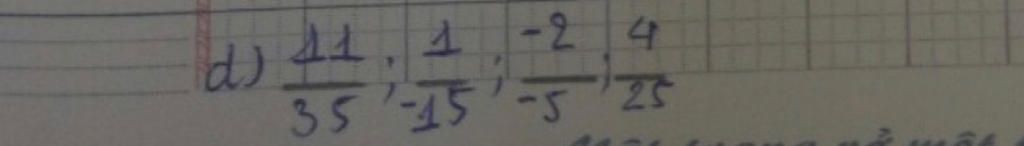 d) 11/35 ; 1/-15 ; -2/-5 ; 4/25